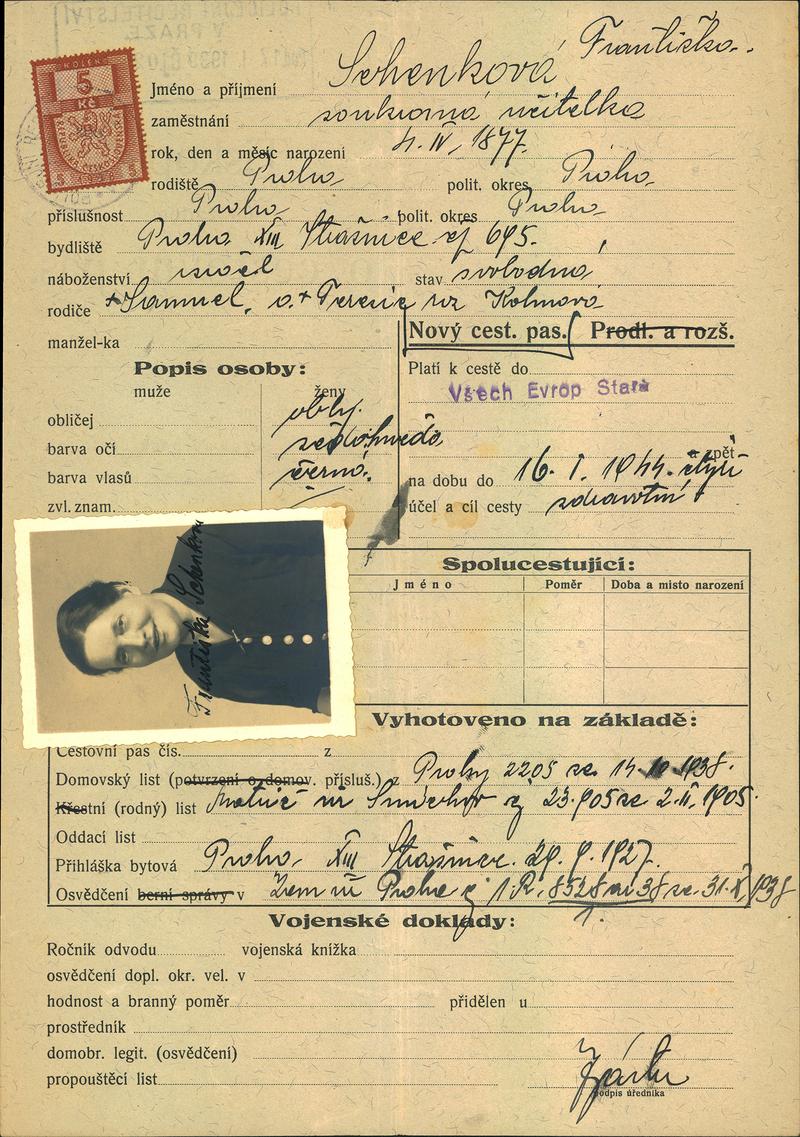 KOLEK
5
Kč
Schenková Františka.
Jméno a příjmení
zaměstnání soukromá učitelka
rok, den a měsíc narození 4. IV. 1877.
rodiště Praha polit. okres Praha
příslušnost Praha polit. okres Praha
bydliště Praha XIII Strašnice čp 695.
náboženství israel stav svobodná
rodiče +Samuel, a + Terezie roz Kolmová
manžel-ka
Nový cest. pas. Prodl. a rozš.
Popis osoby:
muže ženy
Platí k cestě do
Všech Evrop Stará
obličej oblý.
barva očí šedohnědé
a zpět
barva vlasů černá.
na dobu do 16. I. 1944. čtyři
zvl. znam.
účel a cíl cesty zdravotní
Františka Schenková
Spolucestující:
Jméno Poměr Doba a místo narození
Vyhotoveno na základě:
Cestovní pas čís. z
Domovský list (potvrzení o domov. přísluš.) z Prahy 2205 ze 14. 10. 1938.
Křestní (rodný) list Matrič úř Smíchov čj 23.905 ze 2. II. 1905.
Oddací list
Přihláška bytová Praha XIII Strašnice. 29. 9. 1927.
Osvědčení berní správy v Zem úř Praha čj 1 R. 8528 ai 38 ze 31. X. 1938
1.
Vojenské doklady:
Ročník odvodu vojenská knížka
osvědčení dopl. okr. vel. v
hodnost a branný poměr přidělen u
prostředník
domobr. legit. (osvědčení)
propouštěcí list
podpis úředníka